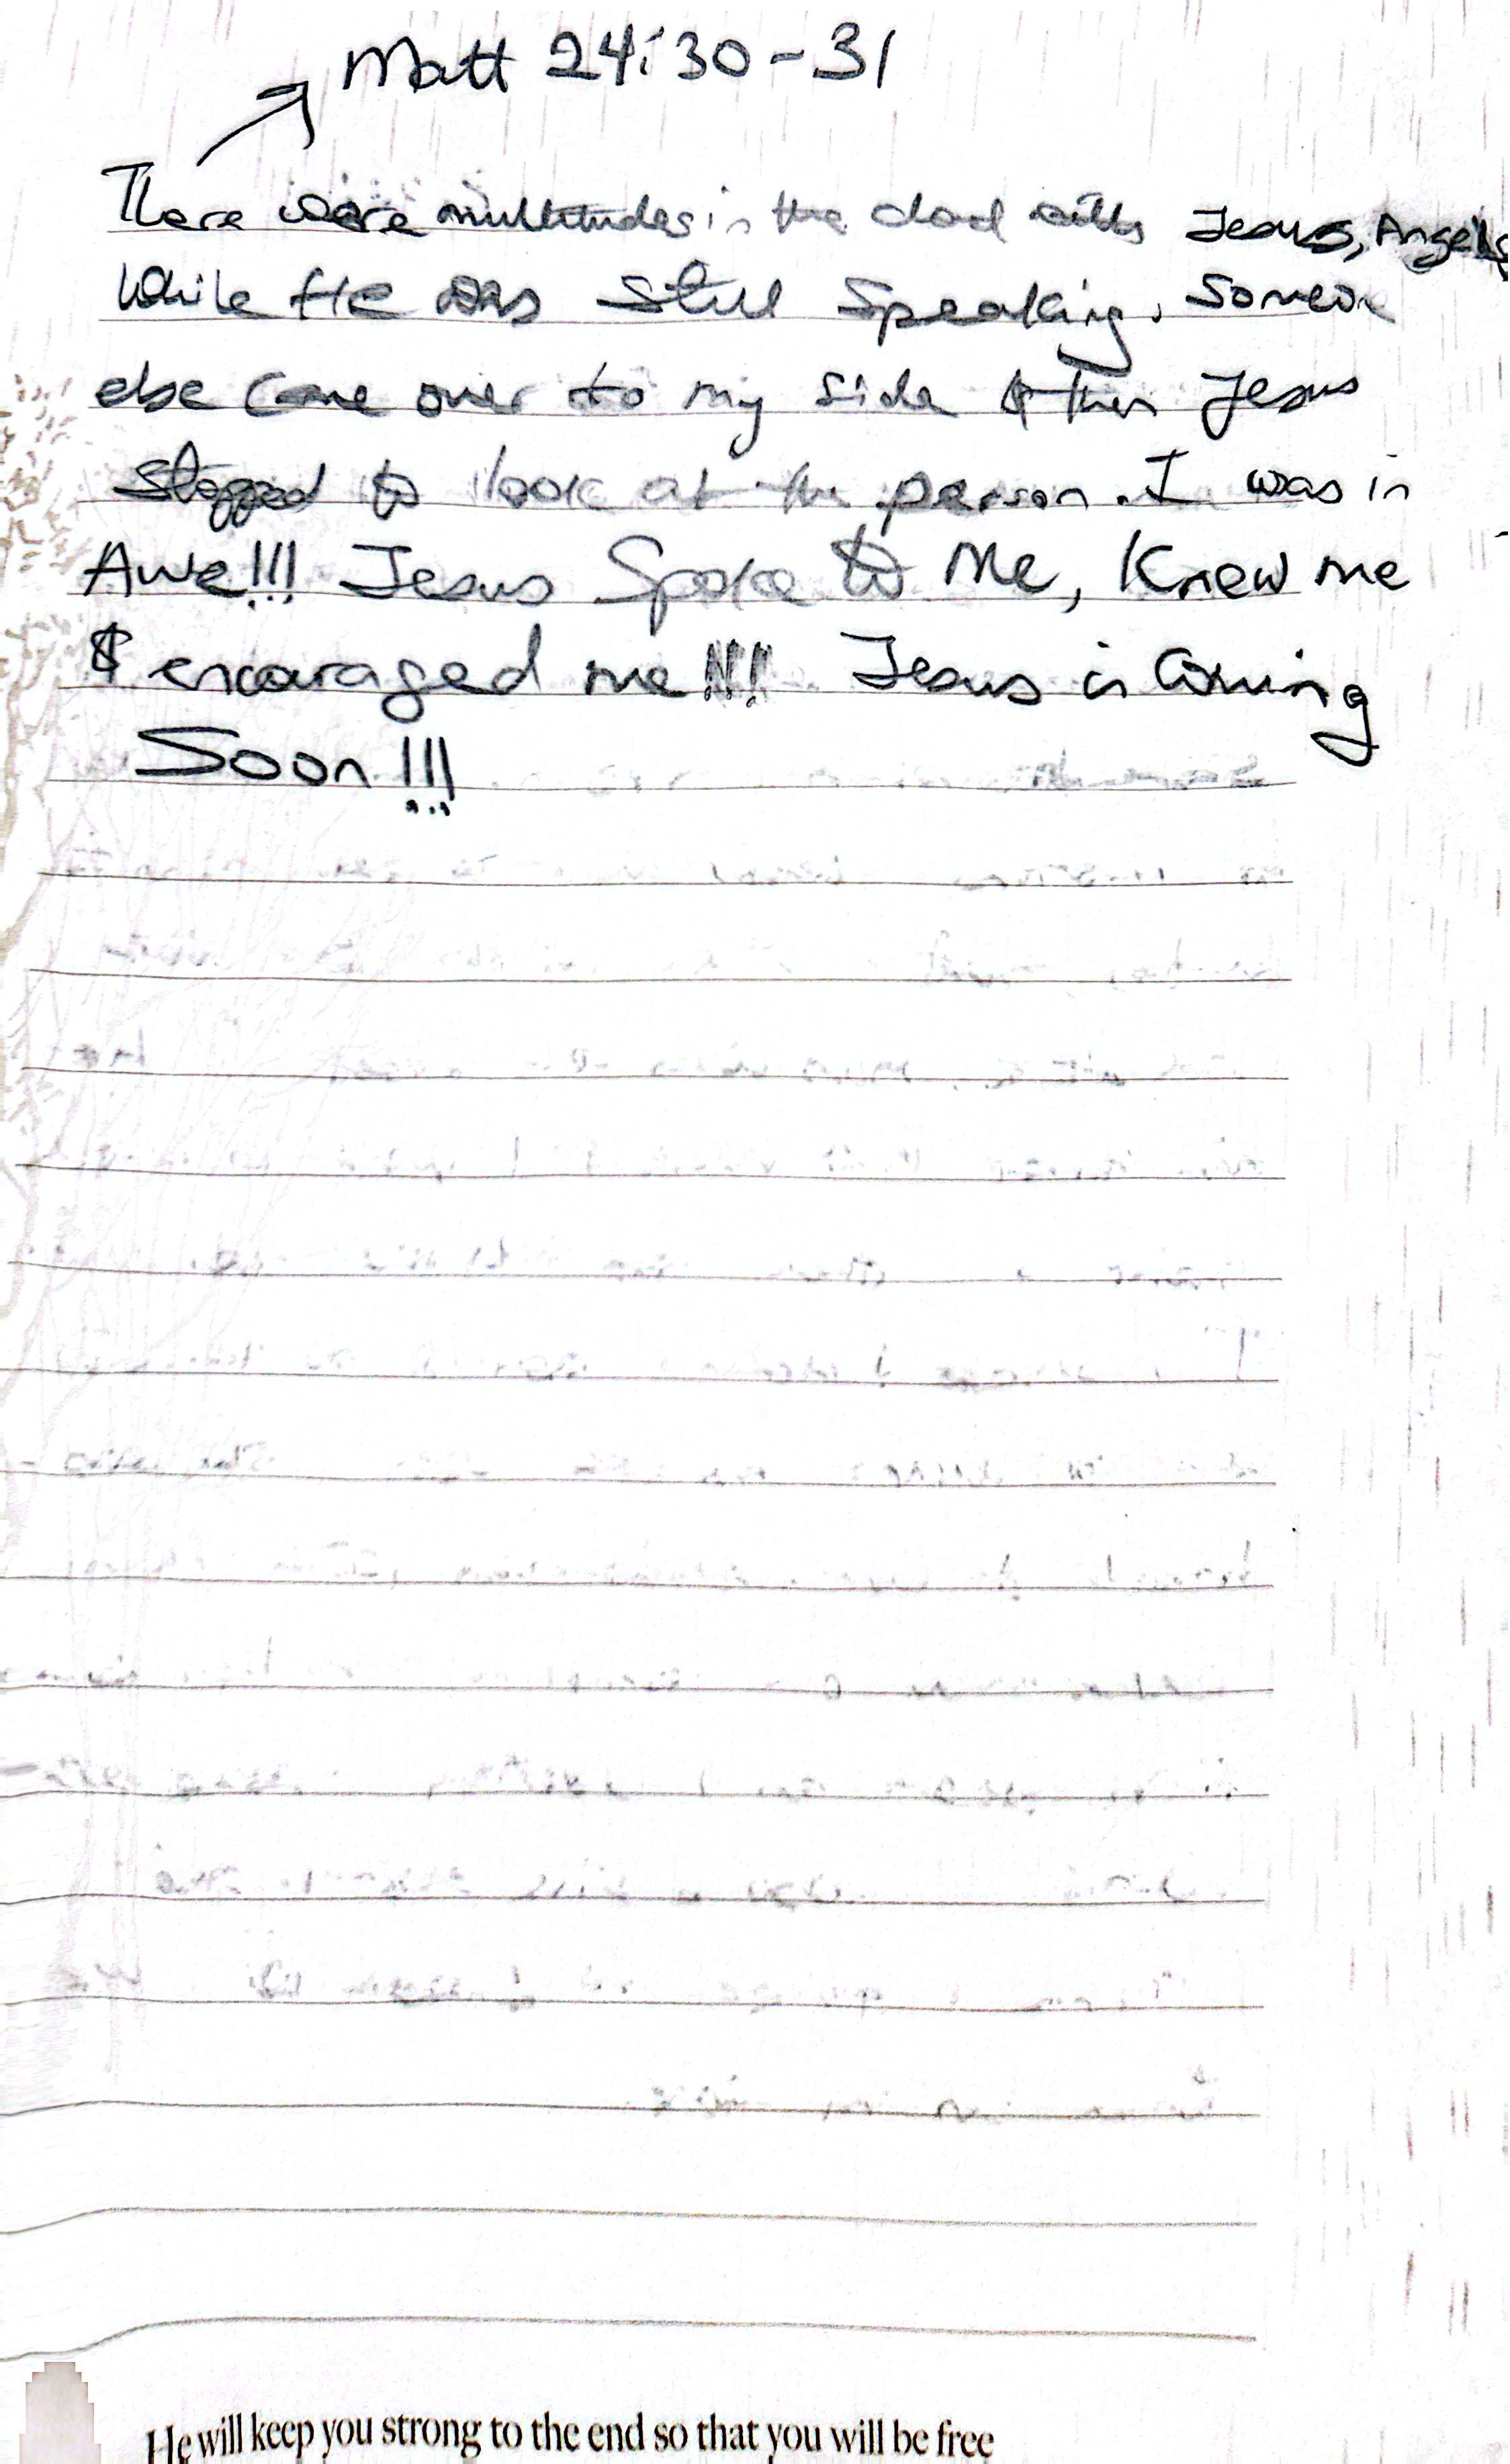 Matt 24:30-31
There were multitudes in the cloud with Jesus, Angels,
While He was still speaking, Someone
else came over to my side & then Jesus
stopped to look at the person. I was in
Awe!!! Jesus Spoke to Me, Knew me
& encouraged me!!! Jesus is Coming
Soon!!!
He will keep you strong to the end so that you will be free